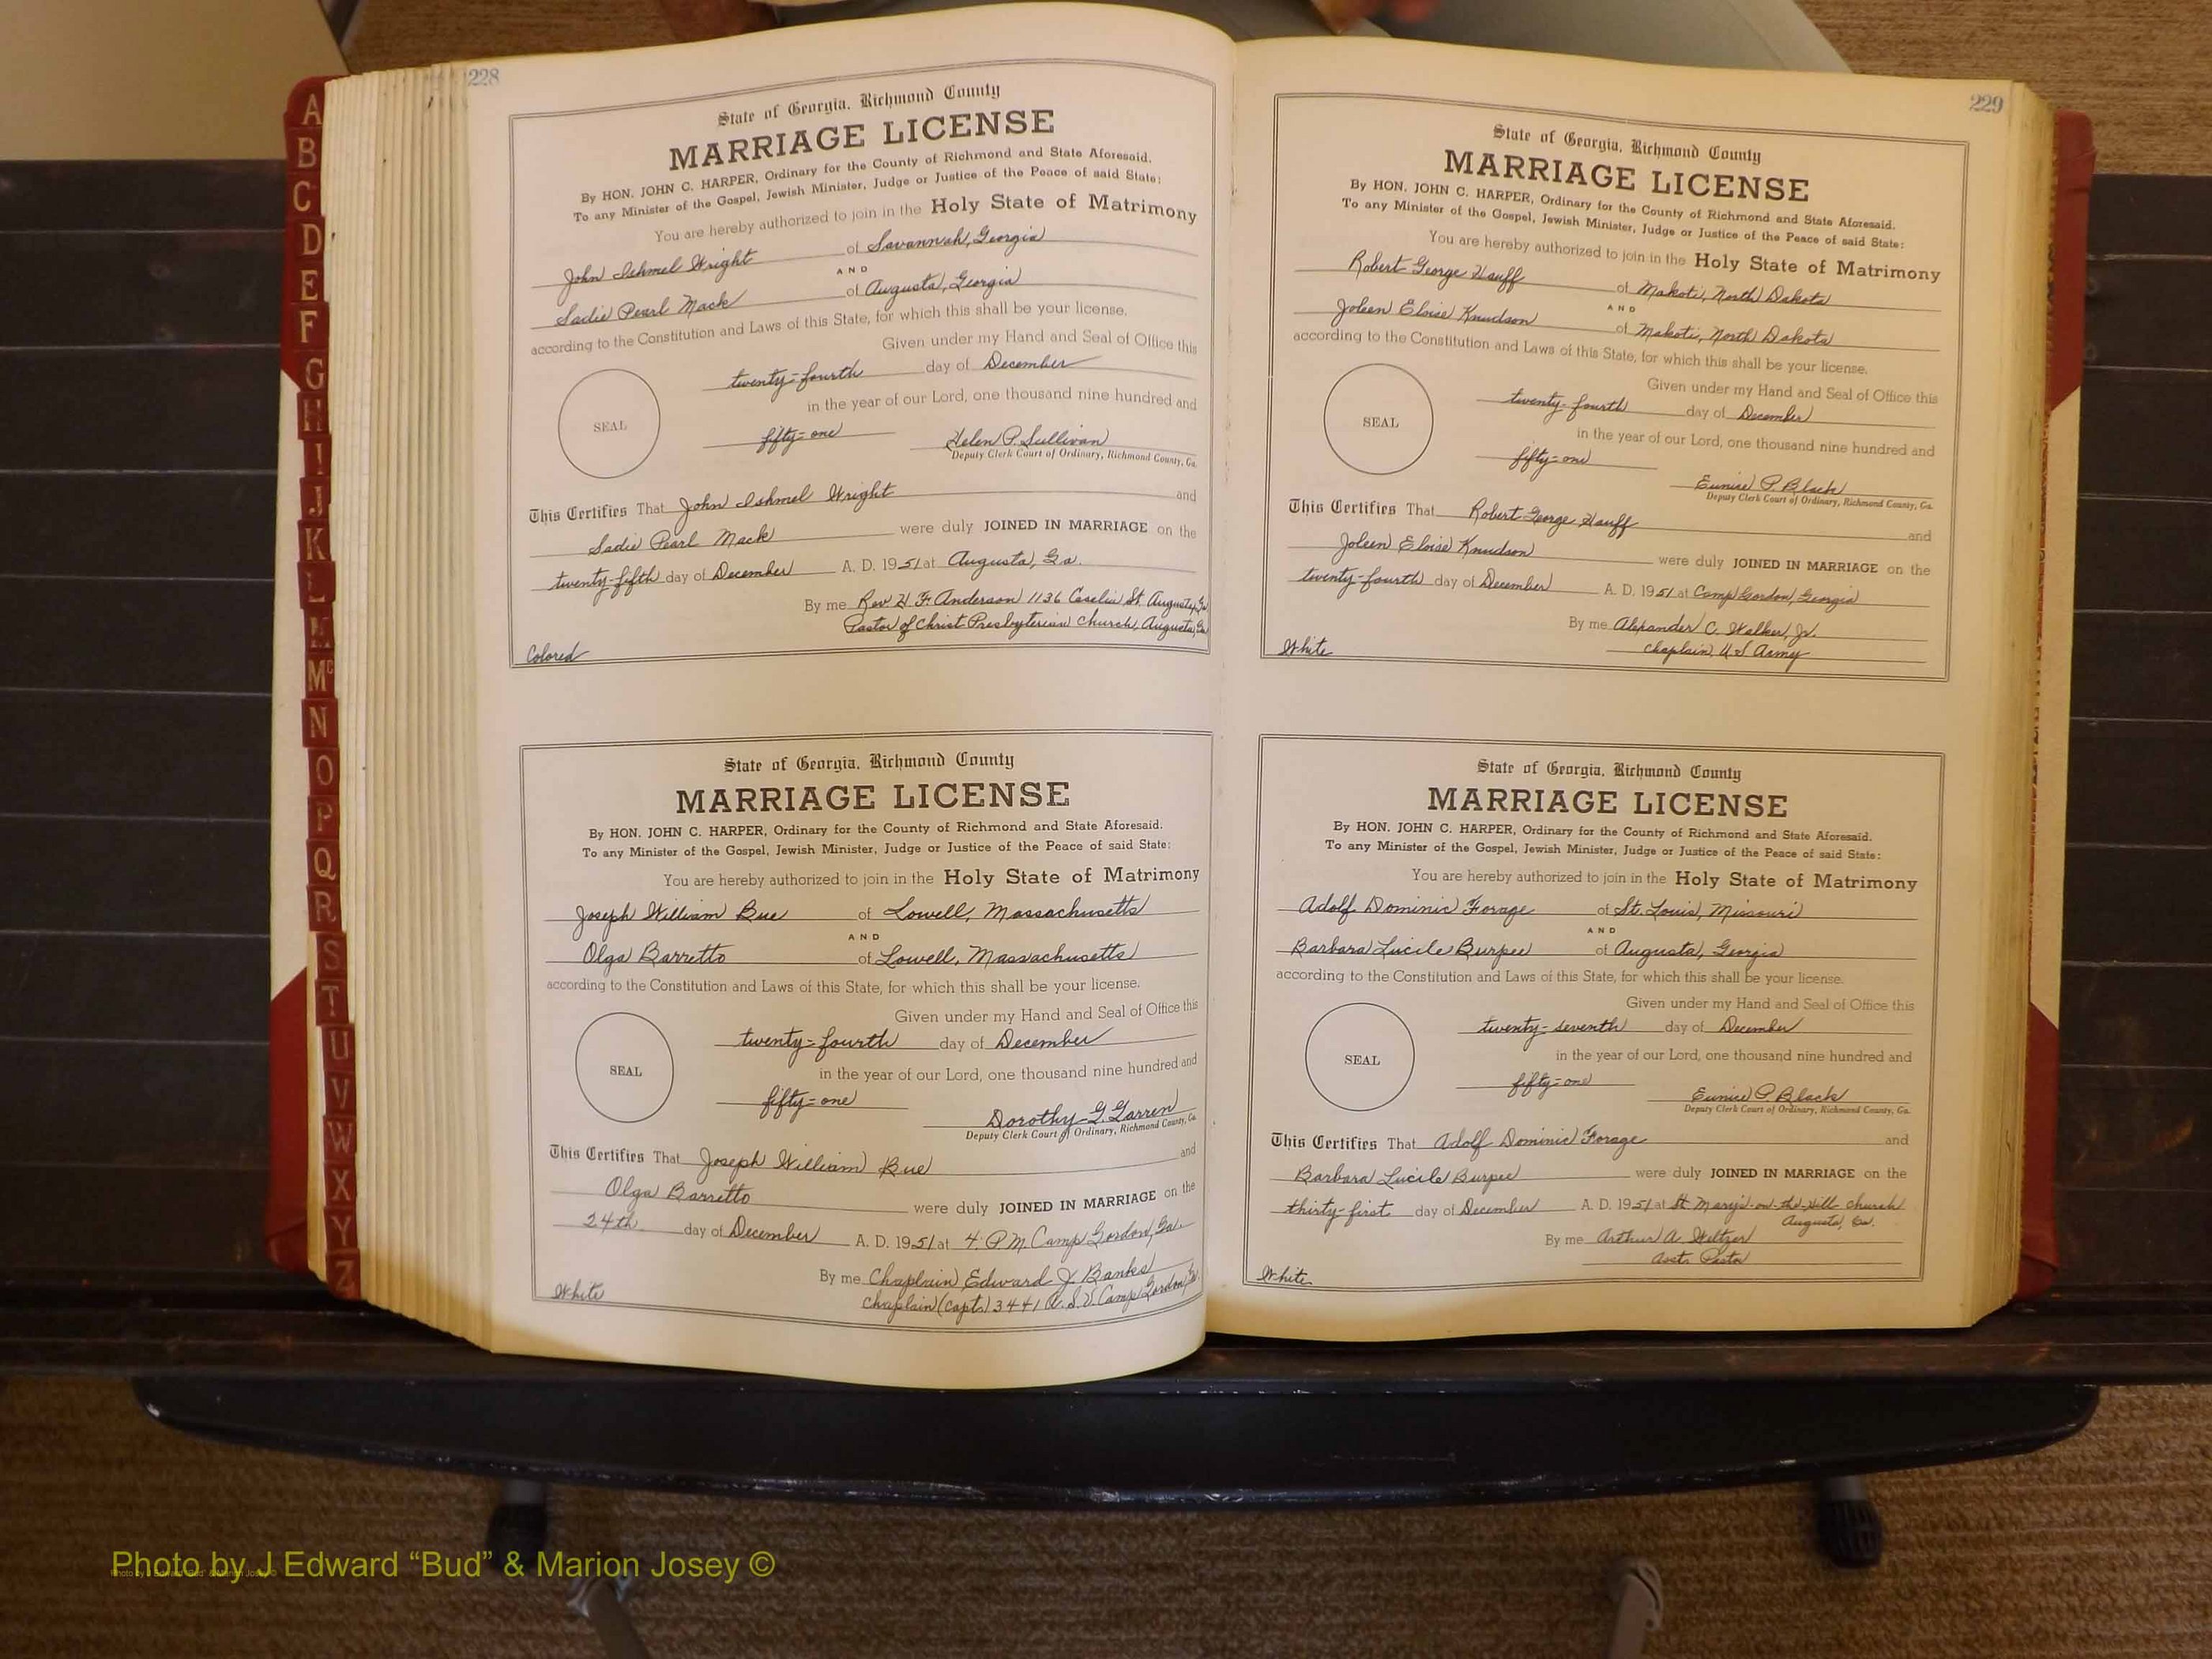 228
State of Georgia, Richmond County
MARRIAGE LICENSE
By HON. JOHN C. HARPER, Ordinary for the County of Richmond and State Aforesaid.
To any Minister of the Gospel, Jewish Minister, Judge or Justice of the Peace of said State:
You are hereby authorized to join in the Holy State of Matrimony
John Ishmel Wright of Savannah, Georgia
AND
Sadie Pearl Mack of Augusta, Georgia
according to the Constitution and Laws of this State, for which this shall be your license.
Given under my Hand and Seal of Office this
twenty-fourth day of December
in the year of our Lord, one thousand nine hundred and
SEAL
fifty-one Helen P. Sullivan
Deputy Clerk Court of Ordinary, Richmond County, Ga.
This Certifies That John Ishmel Wright and
Sadie Pearl Mack were duly JOINED IN MARRIAGE on the
twenty-fifth day of December A. D. 1951 at Augusta, Ga.
By me Rev H. F. Anderson 1136 St. Augusta, Ga
Pastor of Christ Presbyterian Church, Augusta, Ga
Colored
State of Georgia, Richmond County
MARRIAGE LICENSE
By HON. JOHN C. HARPER, Ordinary for the County of Richmond and State Aforesaid.
To any Minister of the Gospel, Jewish Minister, Judge or Justice of the Peace of said State:
You are hereby authorized to join in the Holy State of Matrimony
Joseph William Bue of Lowell, Massachusetts
AND
Olga Barretto of Lowell, Massachusetts
according to the Constitution and Laws of this State, for which this shall be your license.
Given under my Hand and Seal of Office this
twenty-fourth day of December
in the year of our Lord, one thousand nine hundred and
SEAL
fifty-one Dorothy G. Garren
Deputy Clerk Court of Ordinary, Richmond County, Ga.
This Certifies That Joseph William Bue and
Olga Barretto were duly JOINED IN MARRIAGE on the
24th day of December A. D. 1951 at 4. P.M. Camp Gordon, Ga.
By me Chaplain Edward J. Banks
Chaplain (Capt.) 3441 A.S.U. Camp Gordon, Ga.
White
229
State of Georgia, Richmond County
MARRIAGE LICENSE
By HON. JOHN C. HARPER, Ordinary for the County of Richmond and State Aforesaid.
To any Minister of the Gospel, Jewish Minister, Judge or Justice of the Peace of said State:
You are hereby authorized to join in the Holy State of Matrimony
Robert George Hauff of Makoti, North Dakota
AND
Joleen Eloise Knudson of Makoti, North Dakota
according to the Constitution and Laws of this State, for which this shall be your license.
Given under my Hand and Seal of Office this
twenty-fourth day of December
in the year of our Lord, one thousand nine hundred and
SEAL
fifty-one
Eunice P. Black
Deputy Clerk Court of Ordinary, Richmond County, Ga.
This Certifies That Robert George Hauff and
Joleen Eloise Knudson were duly JOINED IN MARRIAGE on the
twenty-fourth day of December A. D. 1951 at Camp Gordon, Georgia
By me Alexander C. Walker, Jr.
Chaplain, U S Army
White
State of Georgia, Richmond County
MARRIAGE LICENSE
By HON. JOHN C. HARPER, Ordinary for the County of Richmond and State Aforesaid.
To any Minister of the Gospel, Jewish Minister, Judge or Justice of the Peace of said State:
You are hereby authorized to join in the Holy State of Matrimony
Adolf Dominic Forage of St. Louis, Missouri
AND
Barbara Lucile Burpee of Augusta, Georgia
according to the Constitution and Laws of this State, for which this shall be your license.
Given under my Hand and Seal of Office this
twenty-seventh day of December
in the year of our Lord, one thousand nine hundred and
SEAL
fifty-one
Eunice P. Black
Deputy Clerk Court of Ordinary, Richmond County, Ga.
This Certifies That Adolf Dominic Forage and
Barbara Lucile Burpee were duly JOINED IN MARRIAGE on the
thirty-first day of December A. D. 1951 at St Mary's-on-the-Hill church
Augusta, Ga.
By me Arthur A. Weltzer
Asst. Pastor
White
A
B
C
D
E
F
G
H
I
J
K
L
M
Mc
N
O
P
Q
R
S
T
U
V
W
X
Y
Z
Photo by J Edward “Bud” & Marion Josey ©
Photo by J Edward "Bud" & Marion Josey ©